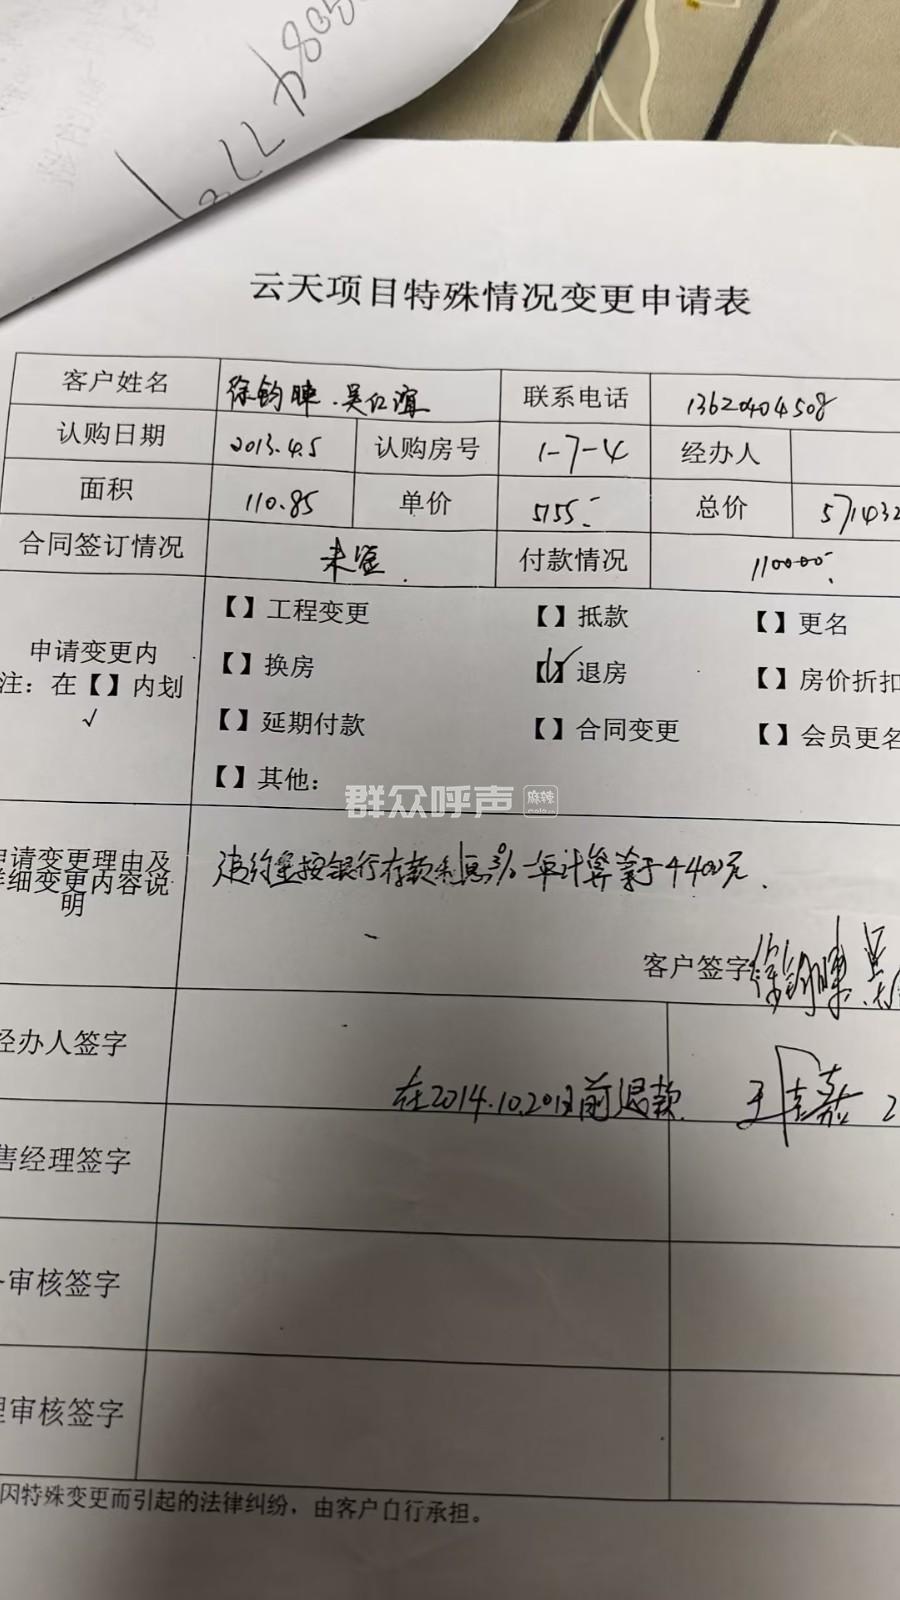 云天项目特殊情况变更申请表
客户姓名 徐钧 吴红谊 联系电话 13620404508
认购日期 2013.4.5 认购房号 1-7-4 经办人
面积 110.85 单价 5155 总价 571432
合同签订情况 未签 付款情况 110000
申请变更内
注：在【】内划
√
【】工程变更 【】抵款 【】更名
【】换房 【√】退房 【】房价折扣
【】延期付款 【】合同变更 【】会员更名
【】其他：
群众呼声 麻辣
申请变更理由及
详细变更内容说
明
违约金按银行存款利息 一年计算等于4400元
客户签字 徐钧
经办人签字
在2014.10.20日前退款
售经理签字
审核签字
理审核签字
因特殊变更而引起的法律纠纷，由客户自行承担。